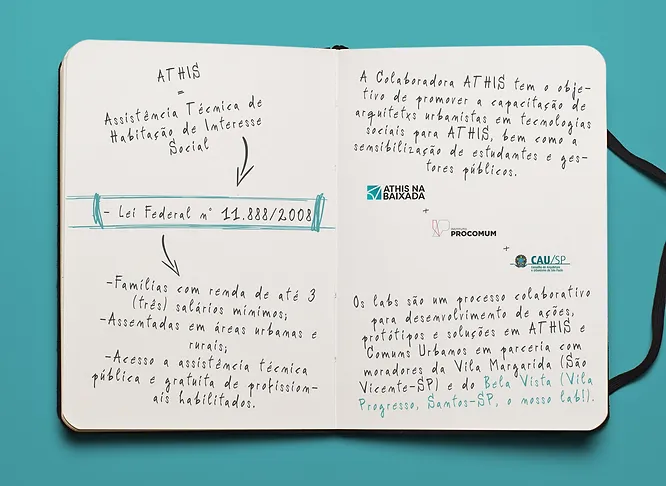 ATHIS
=
Assistência Técnica de
Habitação de Interesse
Social
- Lei Federal n° 11.888/2008
-Famílias com renda de até 3
(três) salários mínimos;
-Assentadas em áreas urbanas e
rurais;
-Acesso a assistência técnica
pública e gratuita de profission-
ais habilitados.
A Colaboradora ATHIS tem o obje-
tivo de promover a capacitação de
arquitetxs urbanistas em tecnologias
sociais para ATHIS, bem como a
sensibilização de estudantes e ges-
tores públicos.
ATHIS NA
BAIXADA
+
PROCOMUM
+
CAU/SP
Conselho de Arquitetura
e Urbanismo de São Paulo
Os labs são um processo colaborativo
para desenvolvimento de ações,
protótipos e soluções em ATHIS e
Comuns Urbanos em parceria com
moradores da Vila Margarida (São
Vicente-SP) e do Bela Vista (Vila
Progresso, Santos-SP, o nosso lab!).